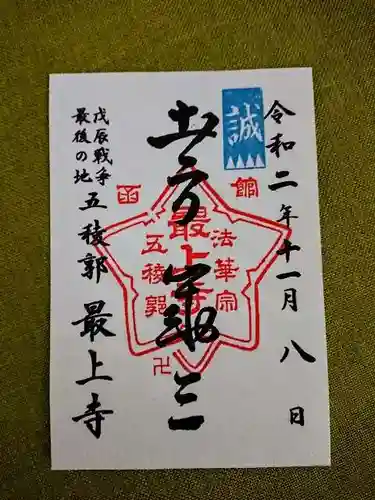 令和二年十一月八日
誠
土方歳三
函館
法華宗
最上寺
五稜郭
卍
戊辰戦争
最後の地
五稜郭 最上寺